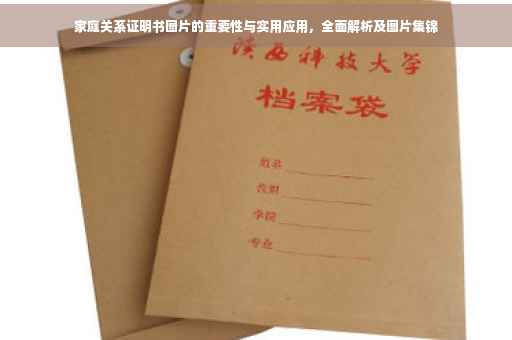 家庭关系证明书图片的重要性与实用应用，全面解析及图片集锦
陕西科技大学
档案袋
姓名
学院
专业